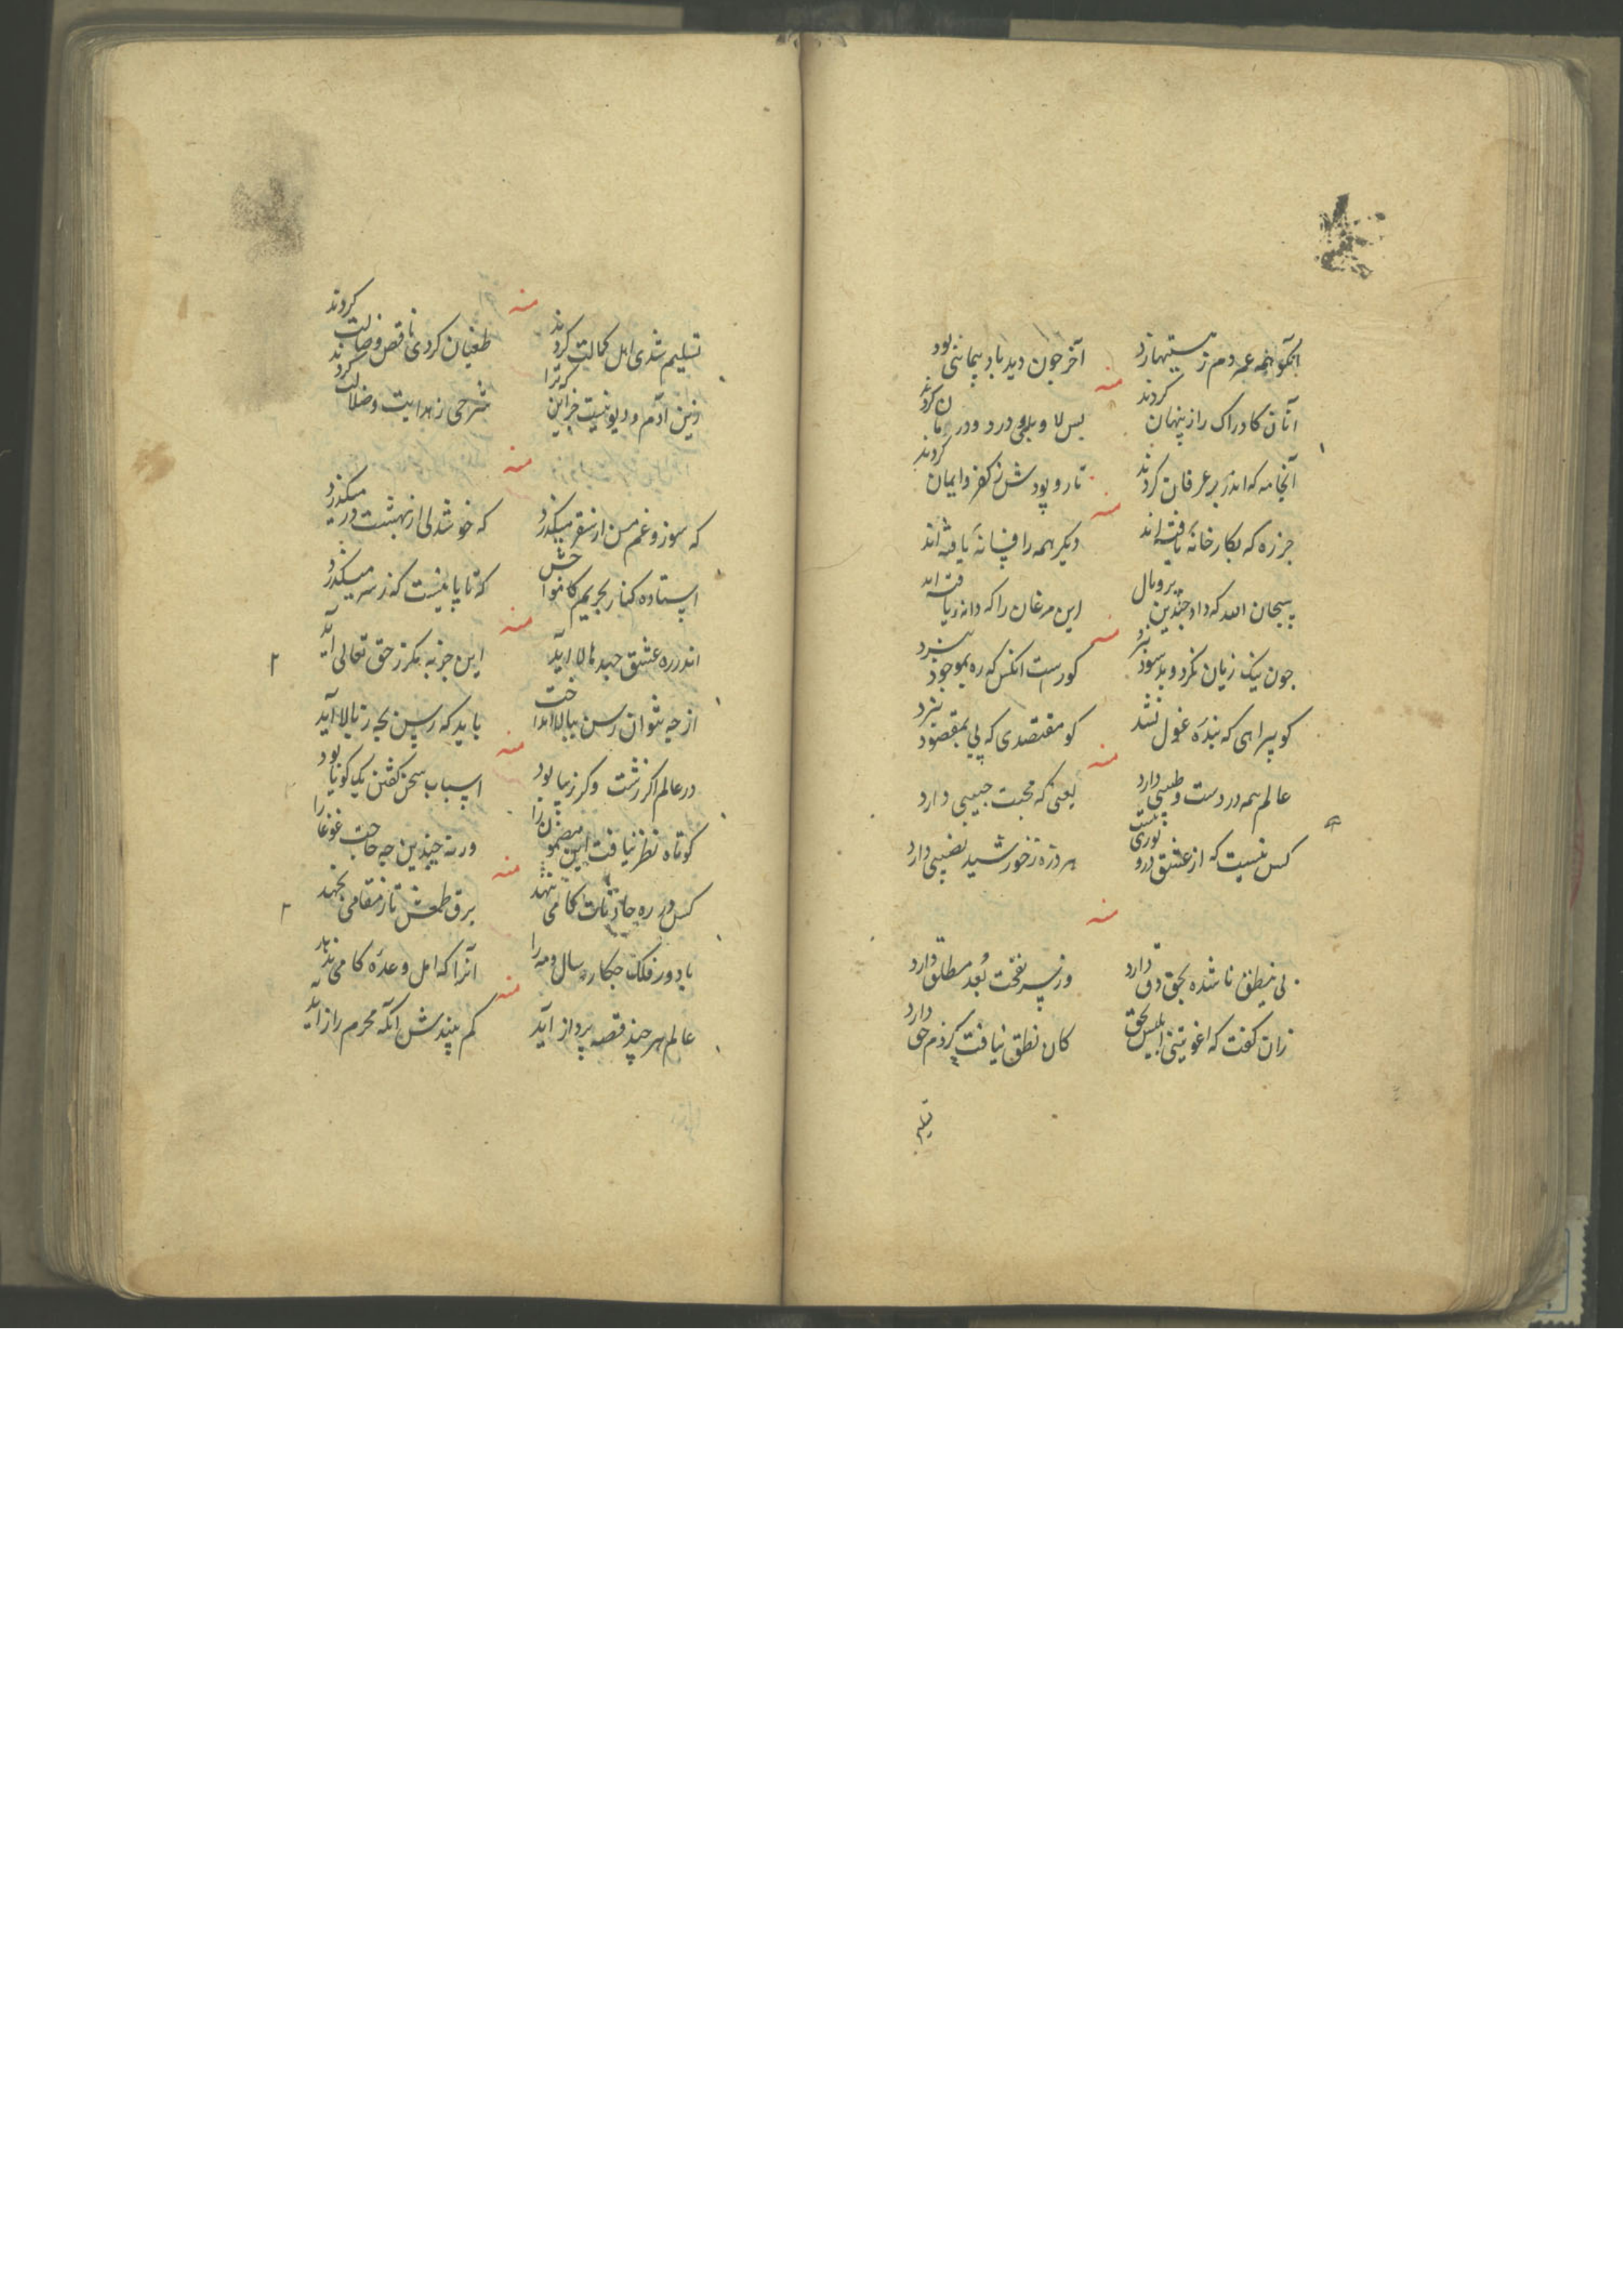 آنکو همه عمر دم ز مستیها زد
آخر چون دید باد پیمائی بود
منه
آنان کادراک راز پنهان کردند
بس لا و بلی درد و درمان کردند
آنجامه که اندر بر عرفان کردند
تار و پودش ز کفر و ایمان کردند
منه
هر ره که بکارخانهٔ یافته‌اند
دیگر همه را فسانهٔ یافته‌اند
سبحان الله که داد چندین پر و بال
این مرغان را که دانهٔ یافته‌اند
منه
چون نیک زیان نکرد و بد سود نبرد
کورست آنکس که ره بموجود نبرد
کو پیراهی که بندهٔ غول نشد
کو مقتصدی که پی بمقصود نبرد
منه
عالم همه دردست و طبیبی دارد
یعنی که محبت حبیبی دارد
کس نیست که از عشق درو نوری نیست
هر ذره ز خورشید نصیبی دارد
منه
بی منطق ناشده بحق دق دارد
وز سر نفخت بعد مطلق دارد
زان گفت که اغویتنی ابلیس بحق
کان نطق نیافت کز دم حق دارد
تسلیم
منه
تسلیم شدی اهل کمالت کردند
طغیان کردی ناقص و ضالت کردند
زین آدم و دیو نیست جز این که ترا
شرحی ز هدایت و ضلالت کردند
منه
که سوز و غمم من از سقر میگذرد
که خوشدلی از بهشت در میگذرد
استاده کنار بحریم کامواجش
که تا پا نیست که ز سر میگذرد
منه
اندر ره عشق جهد ما لا آید
این جزبه مگر ز حق تعالی آید
از چه نتوان رسن ببالا انداخت
باید که رسن بچه ز بالا آید
منه
در عالم اگر زشت و گر زیبا بود
اسباب سخن گفتن یک گویا بود
کوتاه نظر نیافت این مضمون را
ورنه چندین چه حاجت غوغا را
منه
کس در ره حادثات گامی ننهد
برق طمعش تا ز مقامی نجهد
با دور فلک چکار سال و مه را
آنرا که امل وعدهٔ کامی ندهد
منه
عالم هر چند قصه پرداز آید
کم پندش آنکه محرم راز آید